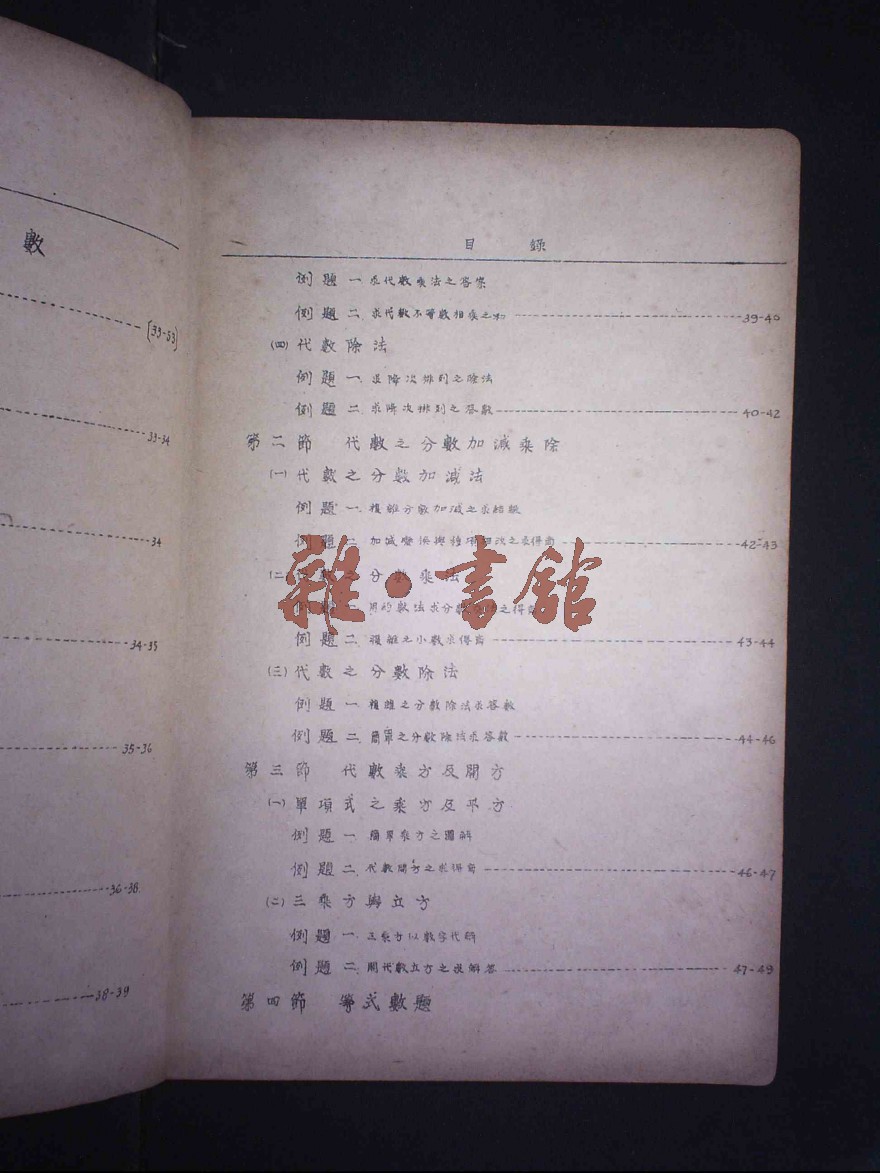 數
(33-53)
33-34
34
34-35
35-36
36-38
38-39
目 錄
例題一.求代數乘法之答案
例題二.求代數不等數相乘之和 39-40
(四)代數除法
例題一.求降次排列之除法
例題二.求降次排列之答數 40-42
第二節 代數之分數加減乘除
(一)代數之分數加減法
例題一.複雜分數加減之求結數
例題二.加減 42-43
(二)代數之分數乘法
例題一.用約數法求分數 之得
例題二.複雜之小數求得商 43-44
(三)代數之分數除法
例題一.複雜之分數除法求答數
例題二.簡單之分數除法求答數 44-46
第三節 代數乘方及開方
(一)單項式之乘方及平方
例題一.簡單乘方之圖解
例題二.代數開方之求得商 46-47
(二)三乘方與立方
例題一.三乘方以數字代解
例題二.開代數立方之求解答 47-49
第四節 等式數題
雜·書館